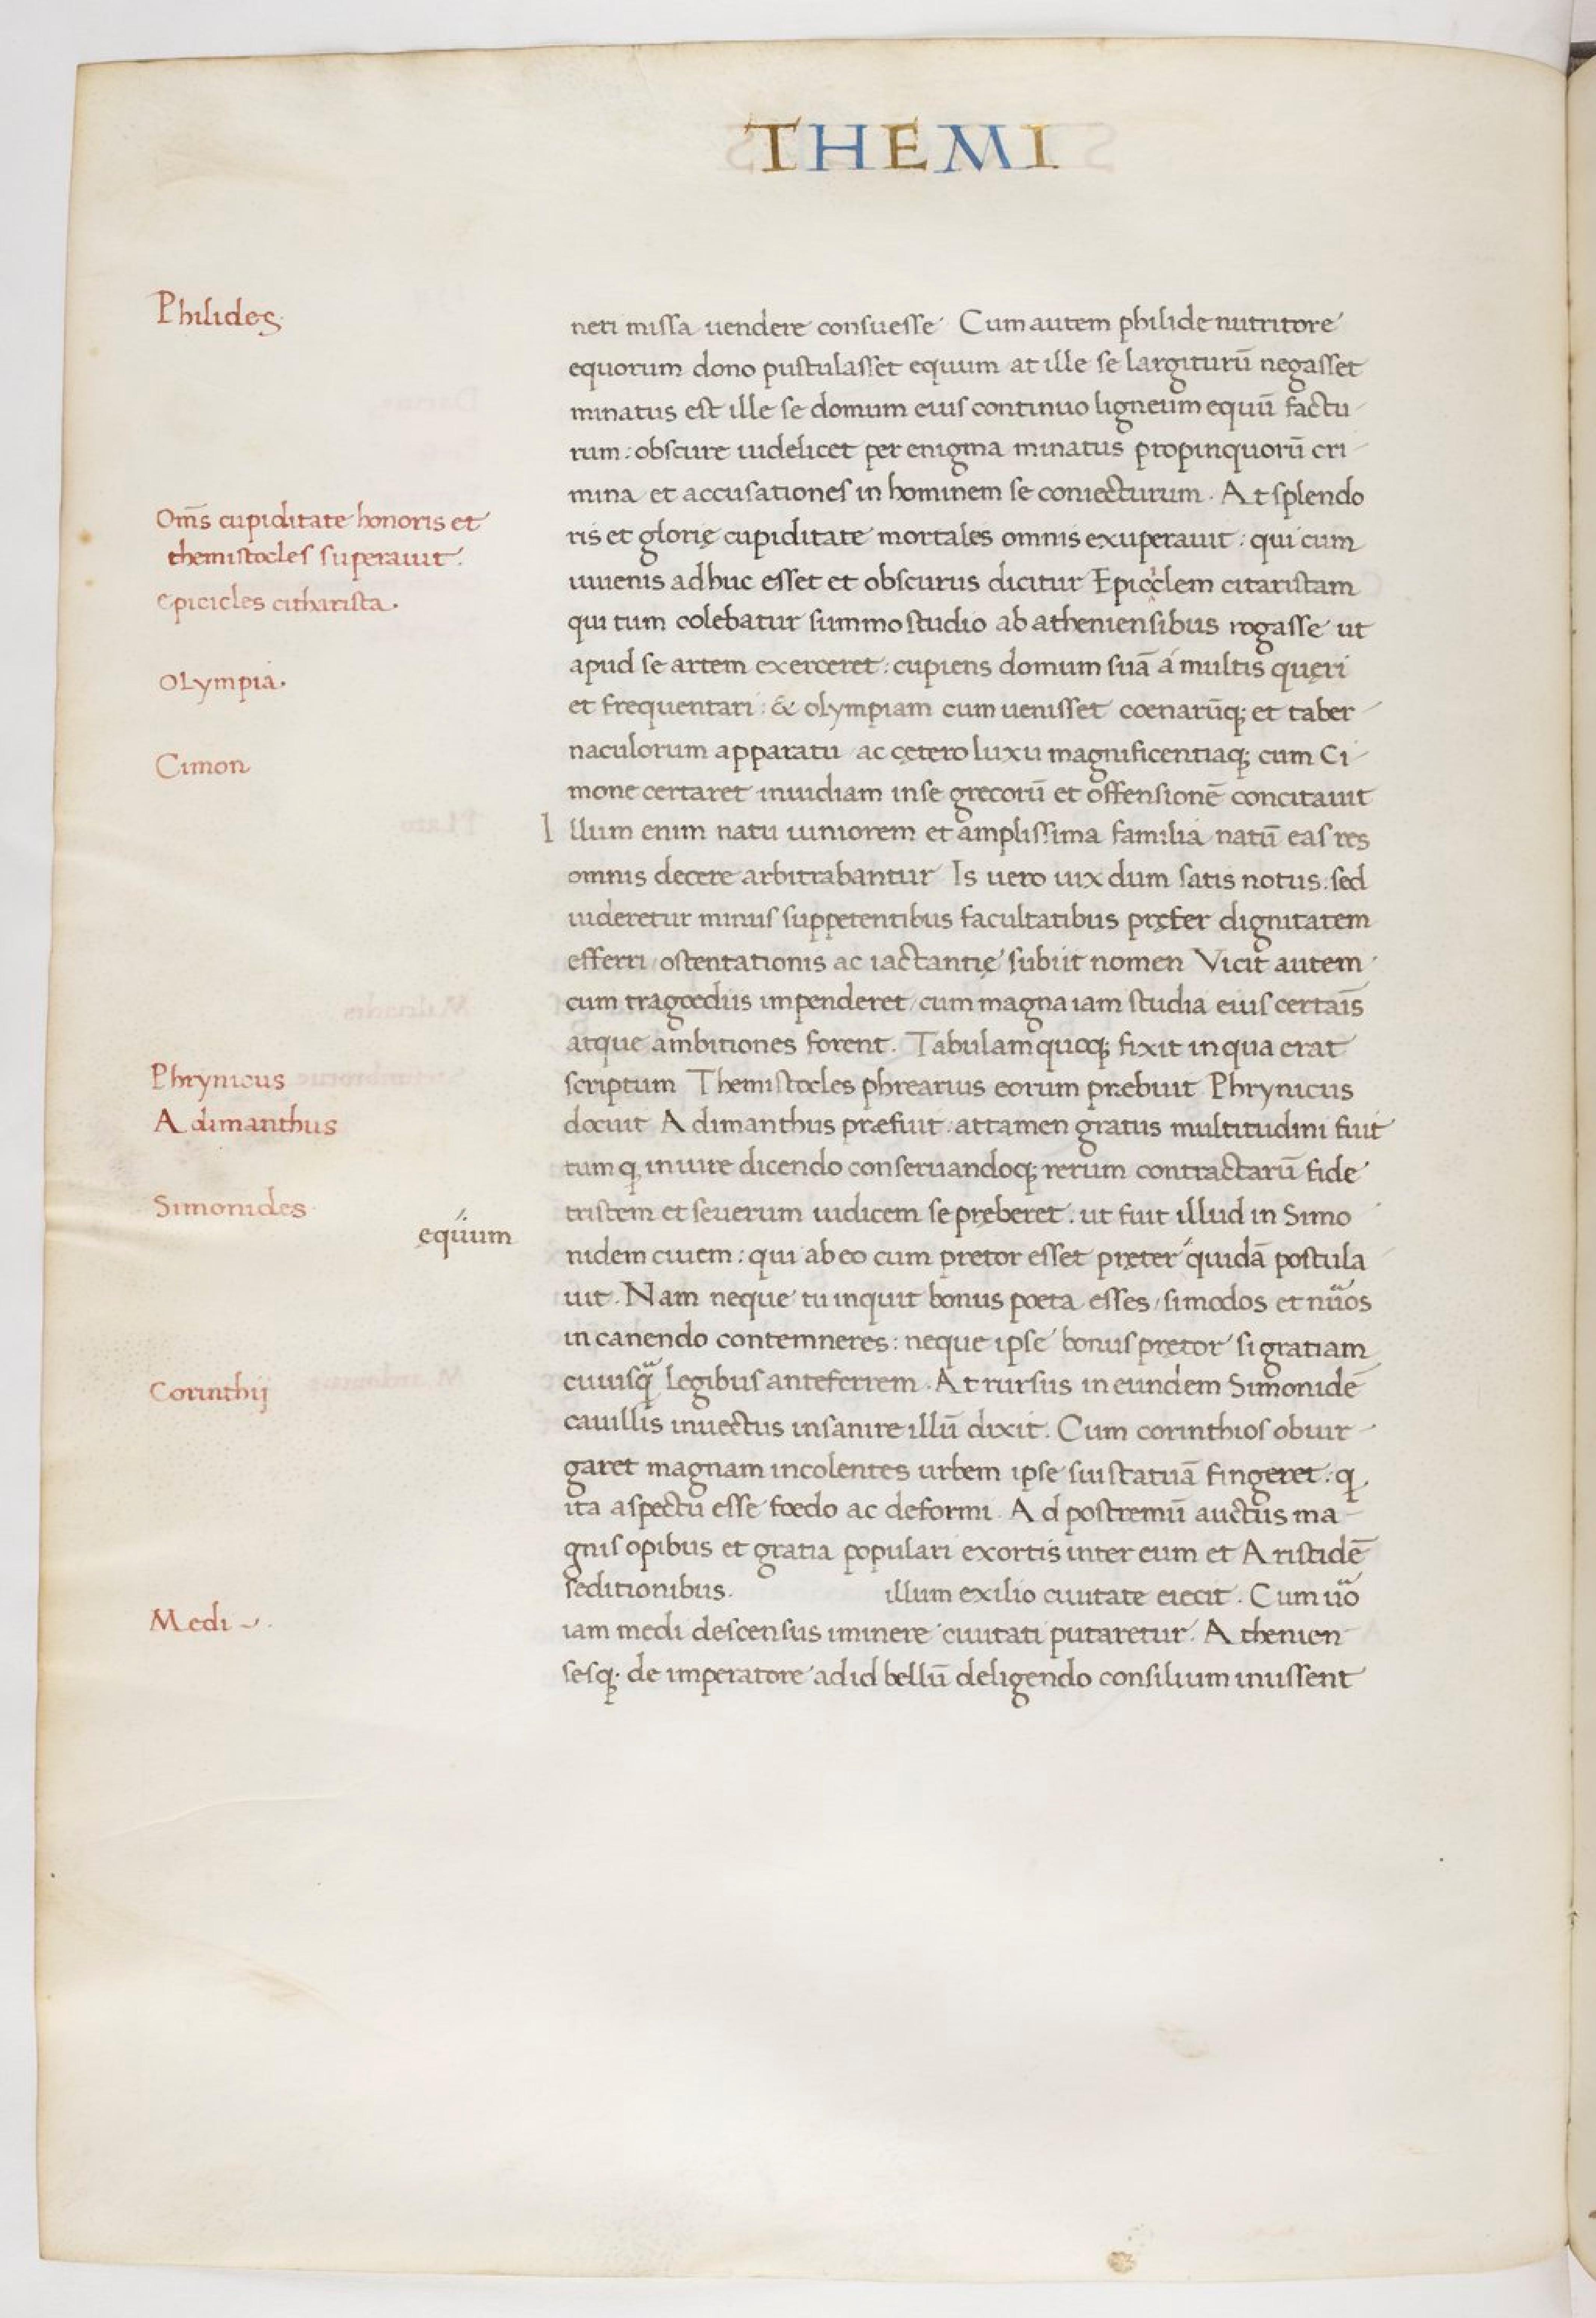 THEMI
Philides
neri missa uendere consuesse Cum autem philide nutritore
equorum dono pustulasset equum at ille se largiturū negasset
minatus est ille se domum eius continuo ligneum equū factu
rum: obscure uidelicet per enigma minatus propinquorū cri
mina et accusationes in hominem se coniecturum. At splendo
Om̄s cupiditate honoris et
themistocles superauit.
ris et glorię cupiditate mortales omnis exuperauit: qui cum
iuuenis adhuc esset et obscurus dicitur Epicclem citaristam
Epicicles citharista.
qui tum colebatur summo studio ab atheniensibus rogasse ut
apud se artem exerceret: cupiens domum suā á multis quęri
Olympia.
et frequentari: & olympiam cum uenisset coenarūq; et taber
naculorum apparatu ac cętero luxu magnificentiaq; cum Ci
Cimon
mone certaret inuidiam in se grecorū et offensionē concitauit
Illum enim natu iuniorem et amplissima familia natū eas res
omnis decere arbitrabantur Is uero uix dum satis notus: sed
uideretur minus suppetentibus facultatibus pręter dignitatem
efferri ostentationis ac iactantię subiit nomen Vicit autem
cum tragoediis impenderet cum magna iam studia eius certaīs
atque ambitiones forent. Tabulam quoq; fixit in qua erat
Phrynicus
scriptum Themistocles phrearius eorum præbuit Phrynicus
Adimanthus
docuit Adimanthus præfuit: attamen gratus multitudini fuit
tum q in iure dicendo conseruandoq; rerum contractarū fide
Simonides
tristem et seuerum iudicem se pręberet: ut fuit illud in Simo
ęquum
nidem ciuem: qui ab eo cum pretor esset pręter quidā postula
uit. Nam neque tu inquit bonus poeta esses si modos et nūos
in canendo contemneres: neque ipse bonus pretor si gratiam
cuiusq legibus anteferrem. At rursus in eundem Simonidē
Corinthij
cauillis inuectus insanire illū dixit. Cum corinthios obiur
garet magnam incolentes urbem ipse sui statuā fingeret: q
ita aspectu esse foedo ac deformi. Ad postremū auctus ma
gnis opibus et gratia populari exortis inter eum et Aristidē
seditionibus. illum exilio ciuitate eiecit. Cum uo
Medi
iam medi descensus iminere ciuitati putaretur. Athenien
sesq; de imperatore ad id bellū deligendo consilium inissent